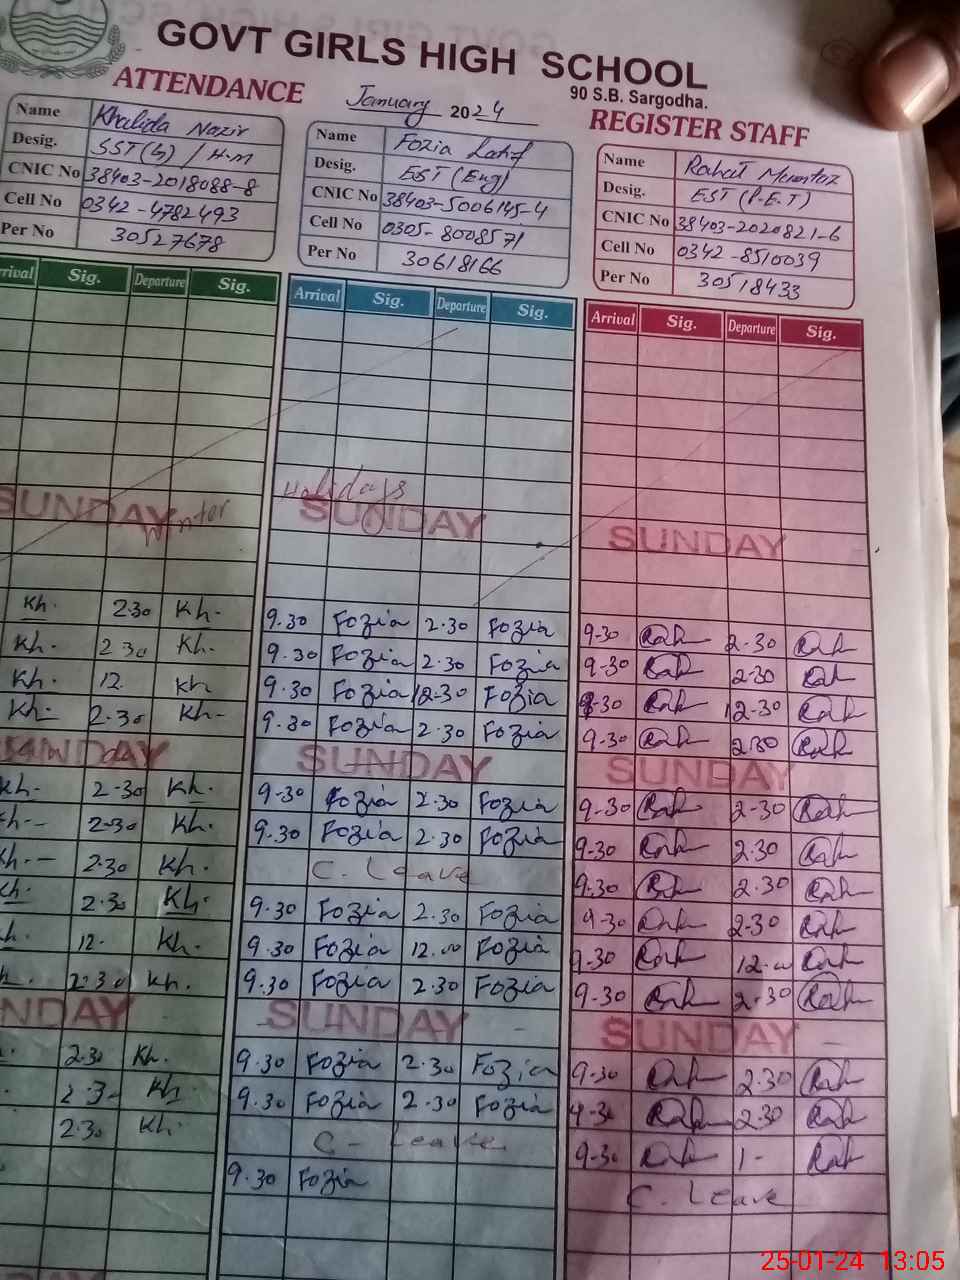 GOVT GIRLS HIGH SCHOOL
90 S.B. Sargodha.
ATTENDANCE January 2024 REGISTER STAFF
Name Khalida Nazir
Desig. SST(G) / H.M
CNIC No 38403-2018088-8
Cell No 0342-4782493
Per No 30527678
Name Fozia Latif
Desig. EST (Eng)
CNIC No 38403-5006145-4
Cell No 0305-8008571
Per No 30618166
Name Rahat Mumtaz
Desig. EST (P.E.T)
CNIC No 38403-2020821-6
Cell No 0342-8510039
Per No 30518433
rrival Sig. Departure Sig. Arrival Sig. Departure Sig. Arrival Sig. Departure Sig.
Winter Holidays
SUNDAY SUNDAY SUNDAY
Kh. 2.30 Kh. 9.30 Fozia 2.30 Fozia 9-30 2-30
Kh. 2.30 Kh. 9.30 Fozia 2.30 Fozia 9-30 2-30
Kh. 12. Kh 9.30 Fozia 12-30 Fozia 9-30 12-30
Kh- 2.30 Kh- 9.30 Fozia 2.30 Fozia 9.30 2.30
SUNDAY SUNDAY SUNDAY
Kh- 2-30 Kh. 9-30 Fozia 2.30 Fozia 9.30 2-30
Kh- 2-30 Kh. 9.30 Fozia 2.30 Fozia 9-30 2.30
Kh.- 2.30 Kh- C. Leave 9.30 2.30
Kh. 2.30 Kh. 9.30 Fozia 2.30 Fozia 9-30 2-30
h. 12- Kh. 9.30 Fozia 12.00 Fozia 9.30 12.00
2.30 Kh. 9.30 Fozia 2.30 Fozia 9-30 2-30
NDAY SUNDAY SUNDAY
2.30 Kh. 9.30 Fozia 2.30 Fozia 9-30 2.30
2.3- Kh 9.30 Fozia 2-30 Fozia 9-30 2.30
2.30 Kh. C- Leave 9-30 1-
9.30 Fozia C. Leave
25-01-24 13:05